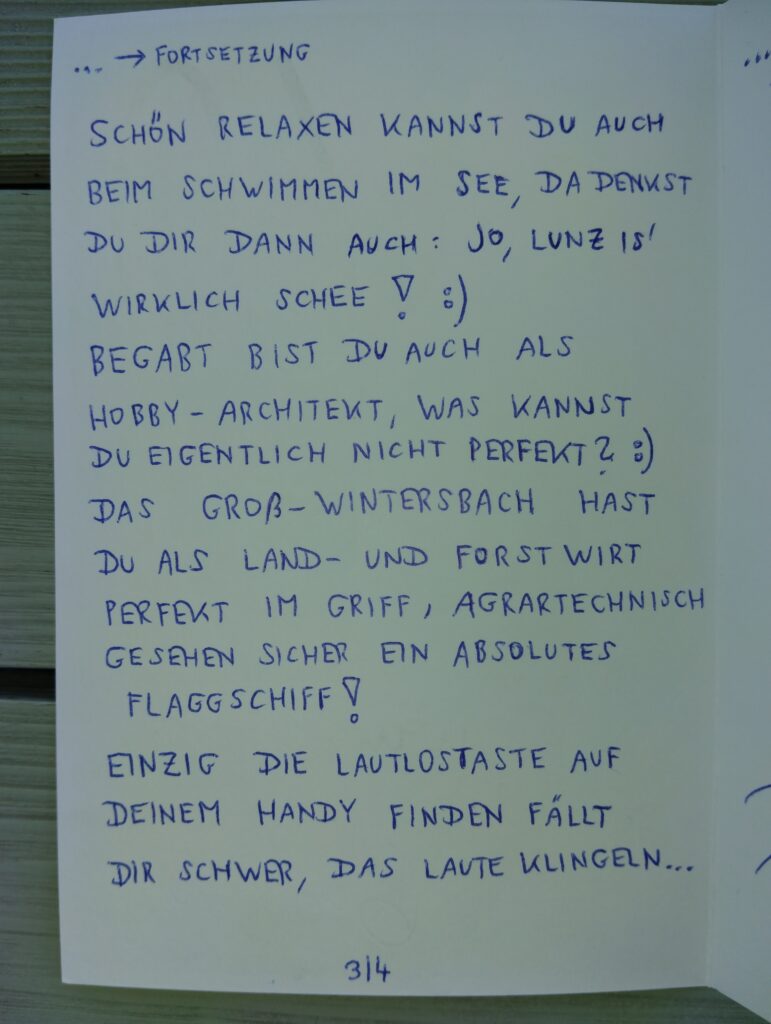 ... → FORTSETZUNG
SCHÖN RELAXEN KANNST DU AUCH
BEIM SCHWIMMEN IM SEE, DA DENKST
DU DIR DANN AUCH: JO, LUNZ IS'
WIRKLICH SCHEE! :)
BEGABT BIST DU AUCH ALS
HOBBY-ARCHITEKT, WAS KANNST
DU EIGENTLICH NICHT PERFEKT? :)
DAS GROß-WINTERSBACH HAST
DU ALS LAND- UND FORSTWIRT
PERFEKT IM GRIFF, AGRARTECHNISCH
GESEHEN SICHER EIN ABSOLUTES
FLAGGSCHIFF!
EINZIG DIE LAUTLOSTASTE AUF
DEINEM HANDY FINDEN FÄLLT
DIR SCHWER, DAS LAUTE KLINGELN...
3/4